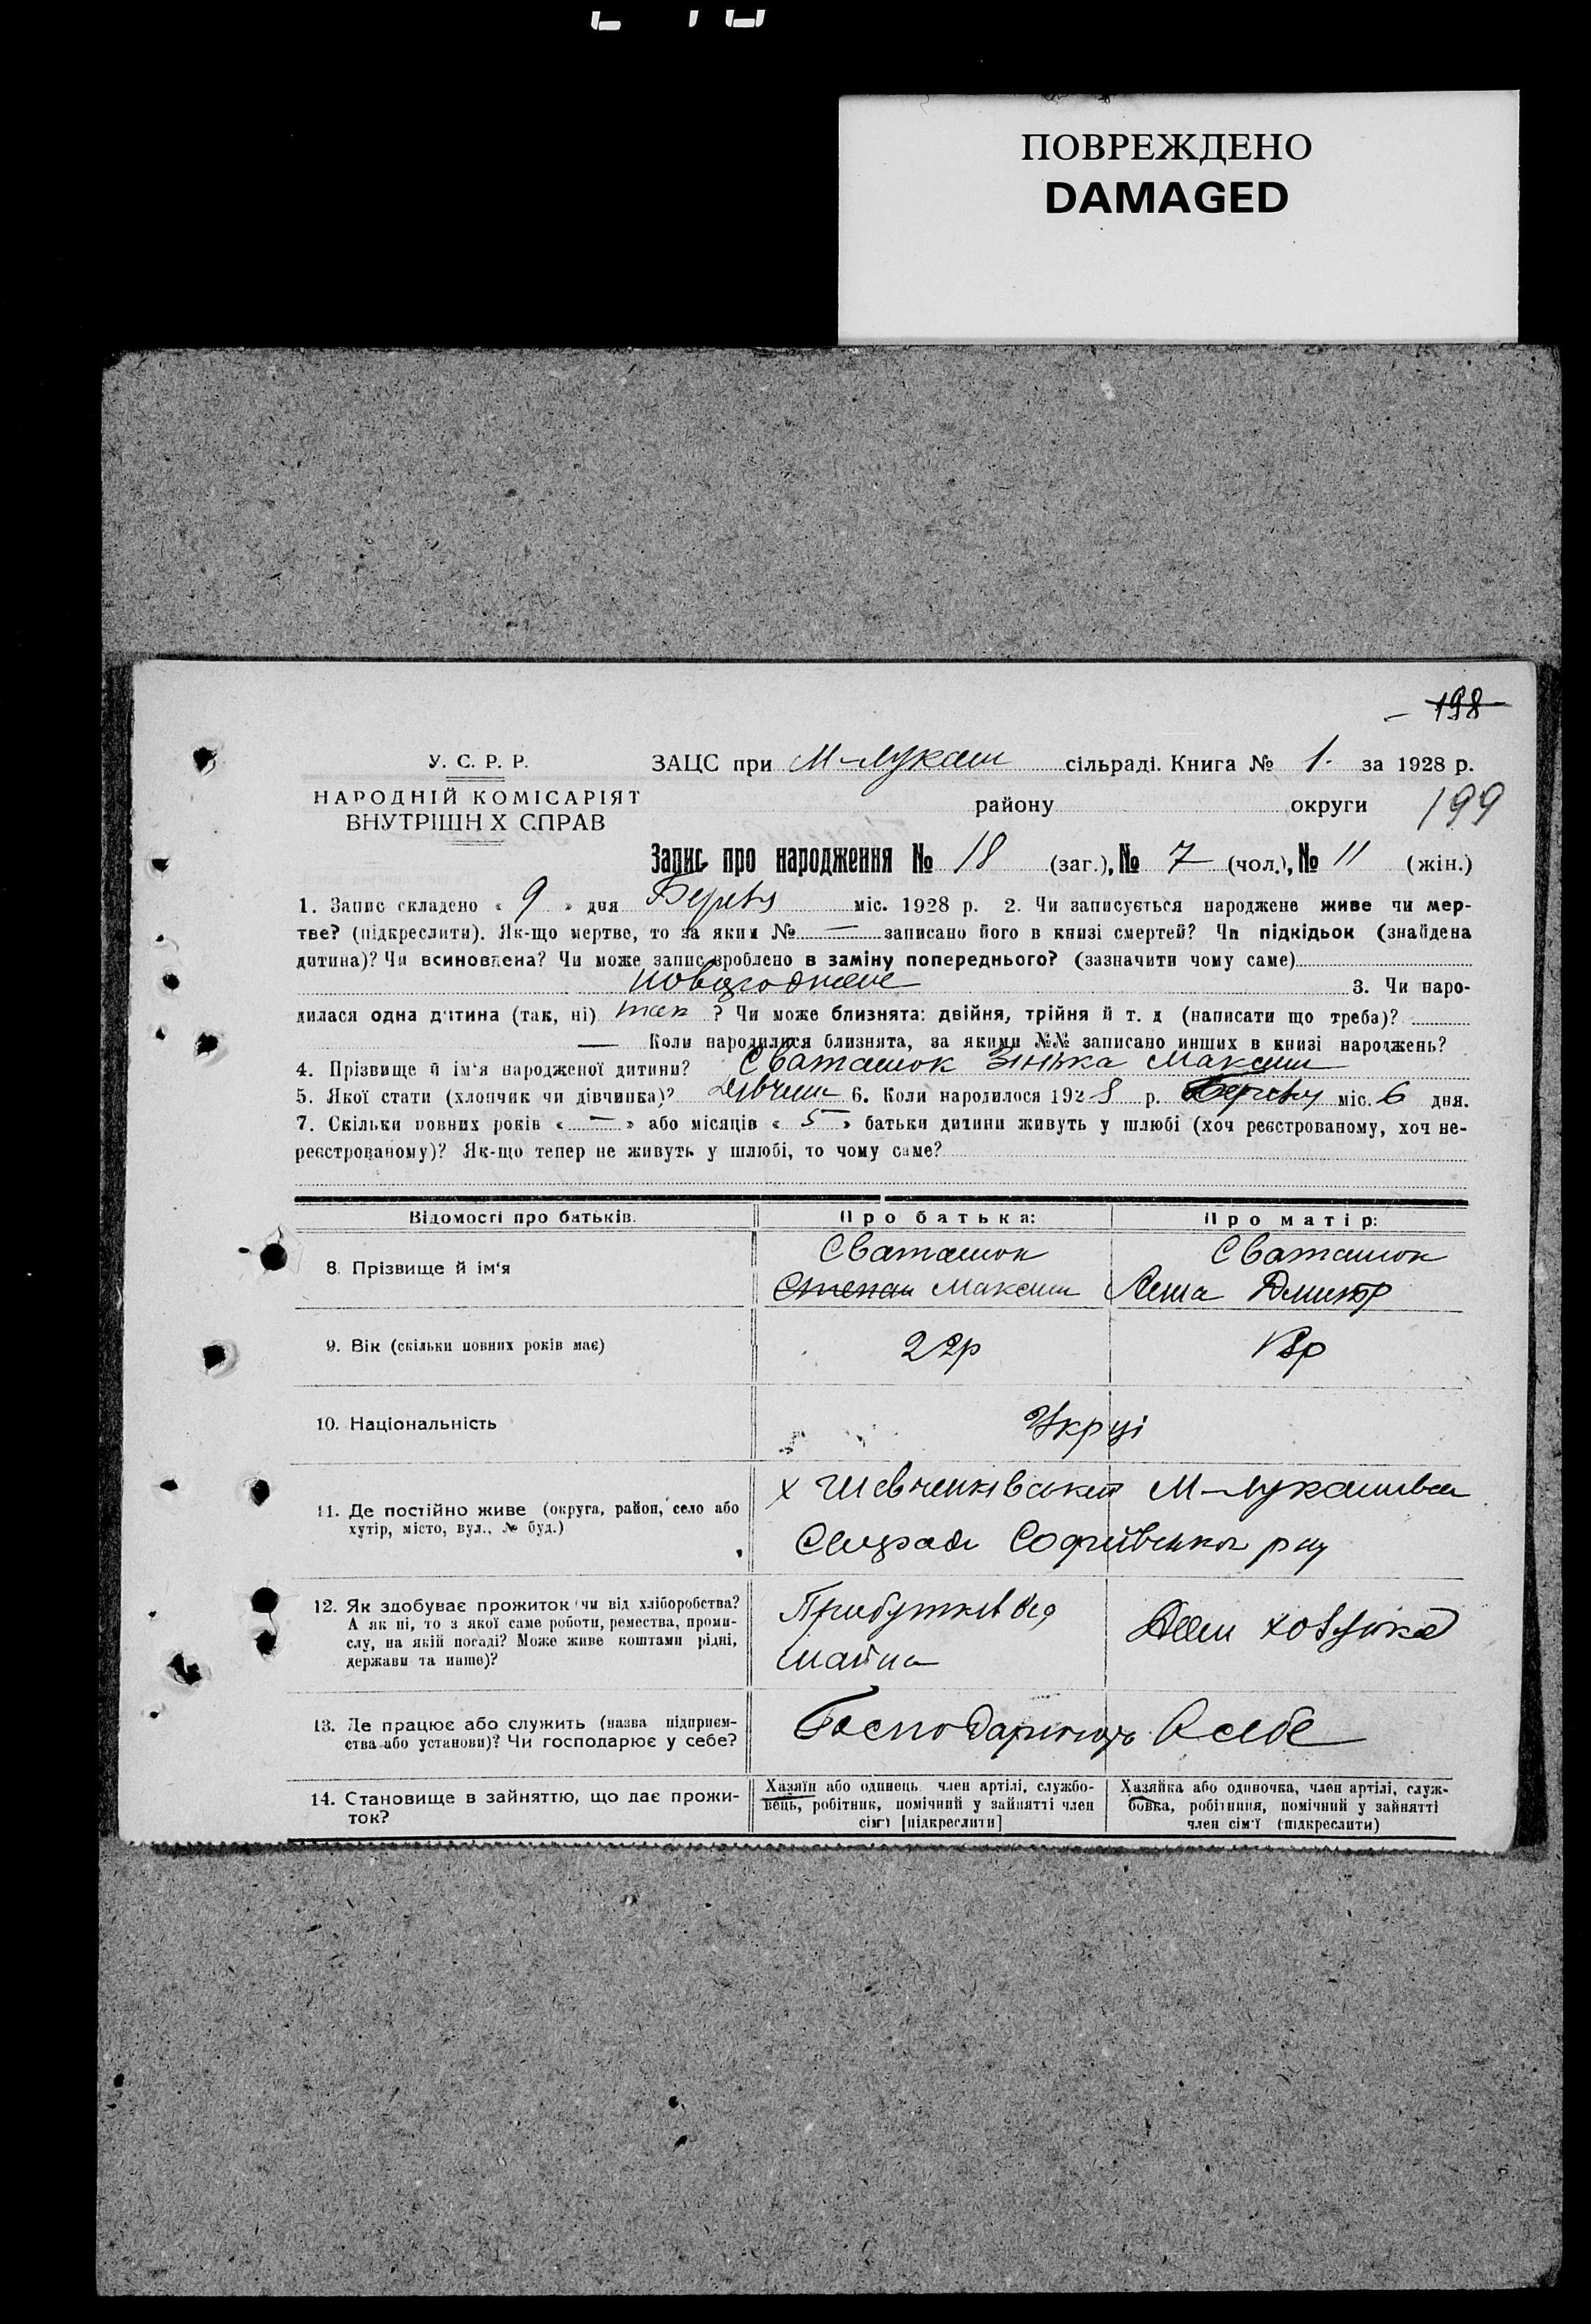 ПОВРЕЖДЕНО
DAMAGED
198
У. С. Р. Р.
НАРОДНІЙ КОМІСАРІЯТ
ВНУТРІШН Х СПРАВ
ЗАЦС при М-Лукаш сільраді. Книга № 1. за 1928 р.
району округи 199
Запис про народження № 18 (заг.), № 7 (чол.), № 11 (жін.)
1. Запис складено « 9 » дня міс. 1928 р. 2. Чи записується народжене живе чи мер-
тве? (підкреслити). Як-що мертве, то за яким № — записано його в книзі смертей? Чи підкідьок (знайдена
дитина)? Чи всиновлена? Чи може запис зроблено в заміну попереднього? (зазначити чому саме)
3. Чи наро-
дилася одна дитина (так, ні) так ? Чи може близнята: двійня, трійня й т. д (написати що треба)?
— Коли народилися близнята, за якими №№ записано инших в книзі народжень?
4. Прізвище й ім'я народженої дитини? Сваташок Зінька Максим
5. Якої стати (хлопчик чи дівчинка)? Дівчин 6. Коли народилося 192 8 р. міс. 6 дня.
7. Скільки повних років « — » або місяців « 5 » батьки дитини живуть у шлюбі (хоч реєстрованому, хоч не-
реєстрованому)? Як-що тепер не живуть у шлюбі, то чому саме?
Відомості про батьків. Про батька: Про матір:
8. Прізвище й ім'я
Сваташок
Степан Максим
Сваташок
Дмитр
9. Вік (скільки повних років має) 22р 18р
10. Національність Укрці
11. Де постійно живе (округа, район, село або
хутір, місто, вул., № буд.)
х Шевченківський М-Лукашівка
Сельради Софіївсько
12. Як здобуває прожиток чи від хліборобства?
А як ні, то з якої саме роботи, ремества, проми-
слу, на якій посаді? Може живе коштами рідні,
держави та инше)?
Прибутків від
майна
13. Де працює або служить (назва підприєм-
ства або установи)? Чи господарює у себе?
Господарюють в себе
14. Становище в зайняттю, що дає прожи-
ток?
Хазяїн або одинець член артілі, службо-
вець, робітник, помічний у зайнятті член
сім'ї [підкреслити]
Хазяйка або одиночка, член артілі, служ-
бовка, робітниця, помічний у зайнятті
член сім'ї (підкреслити)